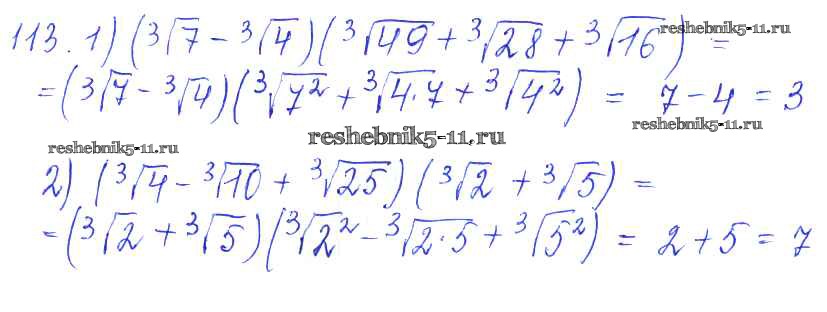 113. 1) (³√7 - ³√4)(³√49 + ³√28 + ³√16) =
reshebnik5-11.ru
= (³√7 - ³√4)(³√7² + ³√4·7 + ³√4²) = 7 - 4 = 3
reshebnik5-11.ru
reshebnik5-11.ru
reshebnik5-11.ru
2) (³√4 - ³√10 + ³√25)(³√2 + ³√5) =
= (³√2 + ³√5)(³√2² - ³√2·5 + ³√5²) = 2 + 5 = 7